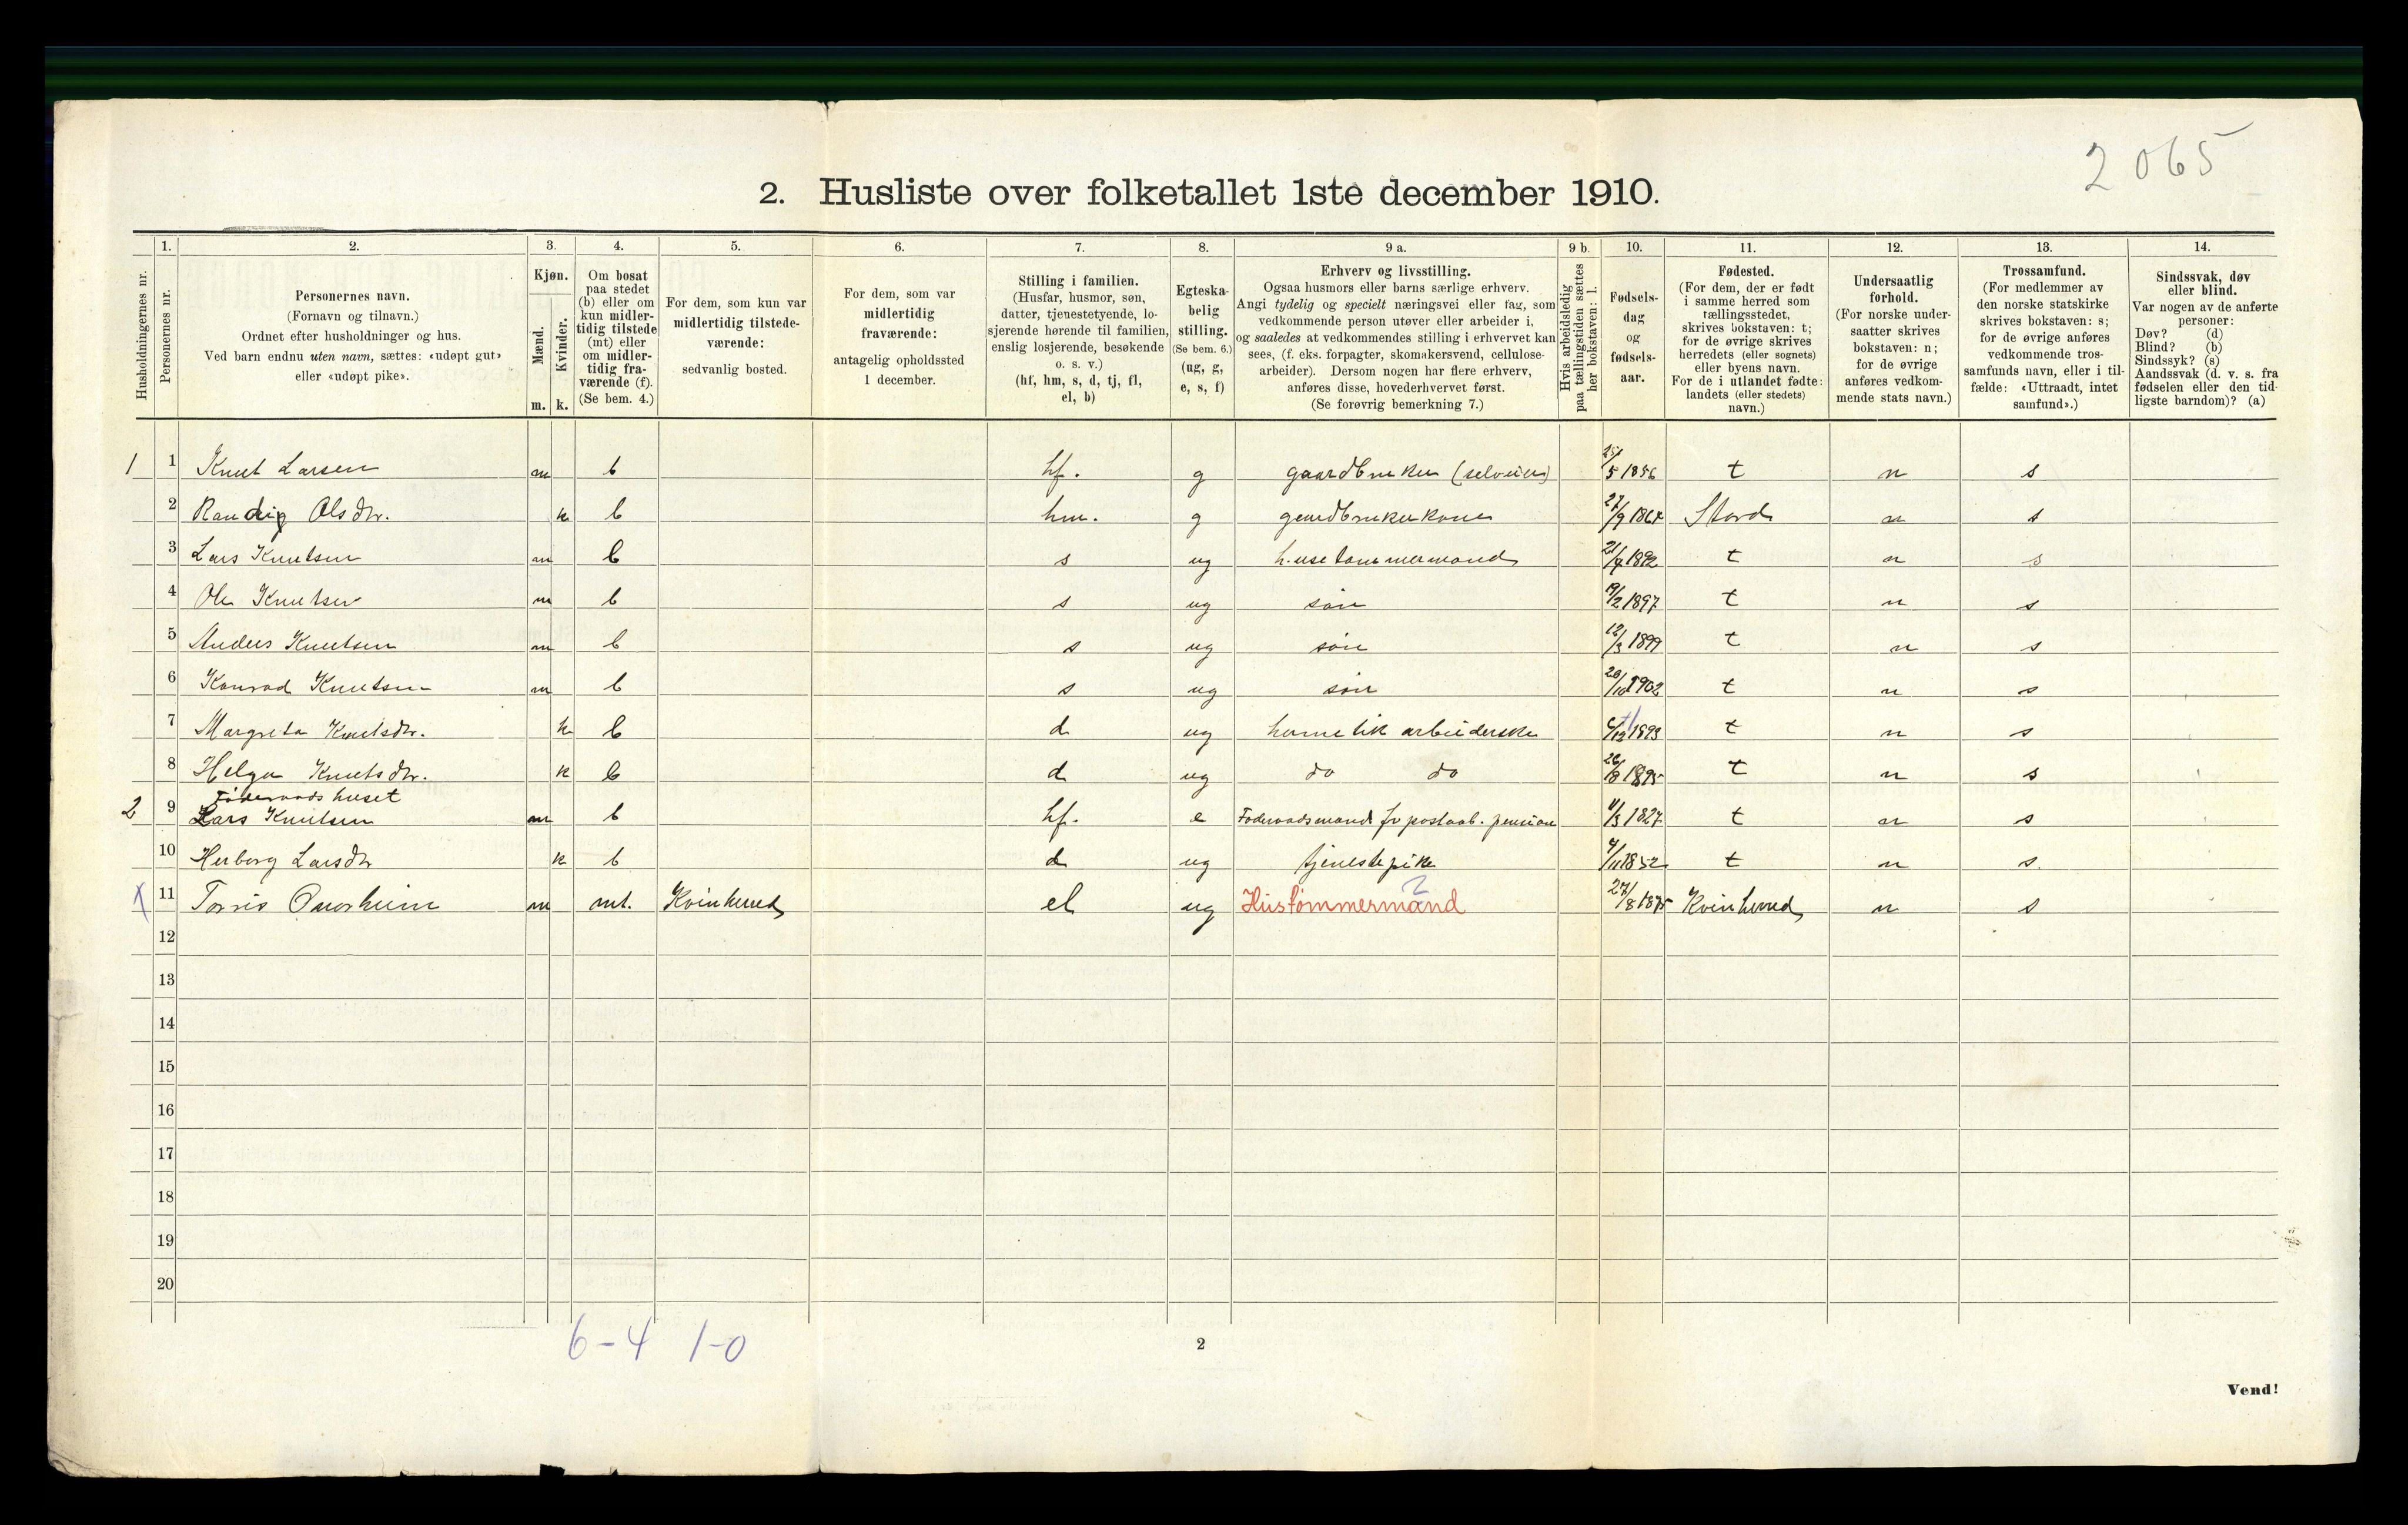 2065
2. Husliste over folketallet 1ste december 1910.
Husholdningernes nr.
1.
Personernes nr.
2.
Personernes navn.
(Fornavn og tilnavn.)
Ordnet efter husholdninger og hus.
Ved barn endnu uten navn, sættes: «udøpt gut»
eller «udøpt pike».
3.
Kjøn.
Mænd.
Kvinder.
m. k.
4.
Om bosat
paa stedet
(b) eller om
kun midler-
tidig tilstede
(mt) eller
om midler-
tidig fra-
værende (f).
(Se bem. 4.)
5.
For dem, som kun var
midlertidig tilstede-
værende:
sedvanlig bosted.
6.
For dem, som var
midlertidig
fraværende:
antagelig opholdssted
1 december.
7.
Stilling i familien.
(Husfar, husmor, søn,
datter, tjenestetyende, lo-
sjerende hørende til familien,
enslig losjerende, besøkende
o. s. v.)
(hf, hm, s, d, tj, fl,
el, b)
8.
Egteska-
belig
stilling.
(Se bem. 6.)
(ug, g,
e, s, f)
9 a.
Erhverv og livsstilling.
Ogsaa husmors eller barns særlige erhverv.
Angi tydelig og specielt næringsvei eller fag, som
vedkommende person utøver eller arbeider i,
og saaledes at vedkommendes stilling i erhvervet kan
sees, (f. eks. forpagter, skomakersvend, cellulose-
arbeider). Dersom nogen har flere erhverv,
anføres disse, hovederhvervet først.
(Se forøvrig bemerkning 7.)
9 b.
Hvis arbeidsledig
paa tællingstiden sættes
her bokstaven: l.
10.
Fødsels-
dag
og
fødsels-
aar.
11.
Fødested.
(For dem, der er født
i samme herred som
tællingsstedet,
skrives bokstaven: t;
for de øvrige skrives
herredets (eller sognets)
eller byens navn.
For de i utlandet fødte:
landets (eller stedets)
navn.)
12.
Undersaatlig
forhold.
(For norske under-
saatter skrives
bokstaven: n;
for de øvrige
anføres vedkom-
mende stats navn.)
13.
Trossamfund.
(For medlemmer av
den norske statskirke
skrives bokstaven: s;
for de øvrige anføres
vedkommende tros-
samfunds navn, eller i til-
fælde: «Uttraadt, intet
samfund».)
14.
Sindssvak, døv
eller blind.
Var nogen av de anførte
personer:
Døv? (d)
Blind? (b)
Sindssyk? (s)
Aandssvak (d. v. s. fra
fødselen eller den tid-
ligste barndom)? (a)
1 1 Knut Larsen m b hf. g gaardbruker (selveier) /5 1856 t n s
2 Randig Olsdtr. k b hm. g gaardbrukerkone 27/9 186 Stord n s
3 Lars Knutsen m b s ug husetømmermand 21/4 1892 t n s
4 Ole Knutsen m b s ug søn /2 1897 t n s
5 Anders Knutsen m b s ug søn 12/3 1899 t n s
6 Konrad Knutsen m b s ug søn 20/10 1902 t n s
7 Margreta Knutsdtr. k b d ug huuslik arbeiderske 6/12 1893 t n s
8 Helga Knutsdtr. k b d ug do do 26/8 1895 t n s
Føderaadshuset
2 9 Lars Knutsen m b hf. e Føderaadsmand fv postaab. pension /3 1827 t n s
10 Herborg Larsdtr k b d ug tjenestepike 4/11 1852 t n s
X 11 Torris Omvikheim m mt. Kvinherred el ug Hustømmermand 2 27/8 1875 Kvinherred n s
12
13
14
15
16
17
18
19
20
6-4 1-0
2
Vend!